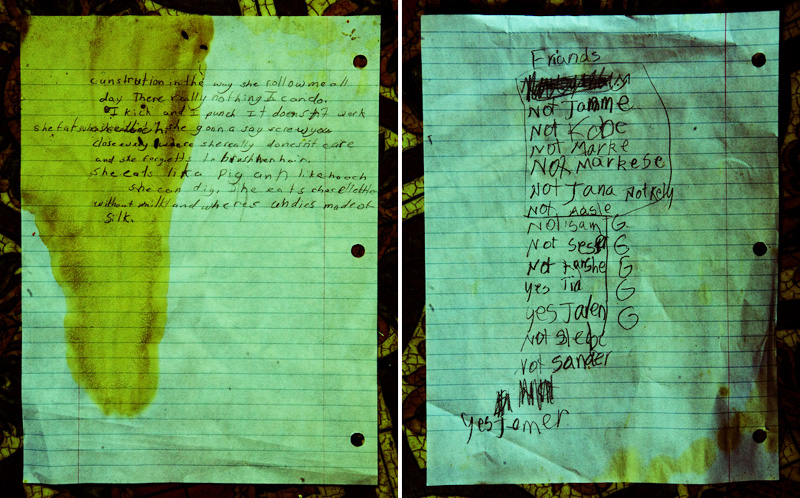 cunstrution in the way she follow me all
day There really nothing I can do.
I kick and I punch It doesn't work
she gonna say screw you
close every where she really donesnt care
and she forgetts to brush her hair.
she eats lika pig and like hooch
she can dig. she eats
without milk and wheres undies made of
silk.
Friends
Not Jamme
Not Kobe
Not Marke
Not Markese
Not Jana Not Kely
Not Aasle
Not Sam G
Not G
Not G
Yes Tia G
yes Jalen G
Not
Not Sander
Yes Jomer